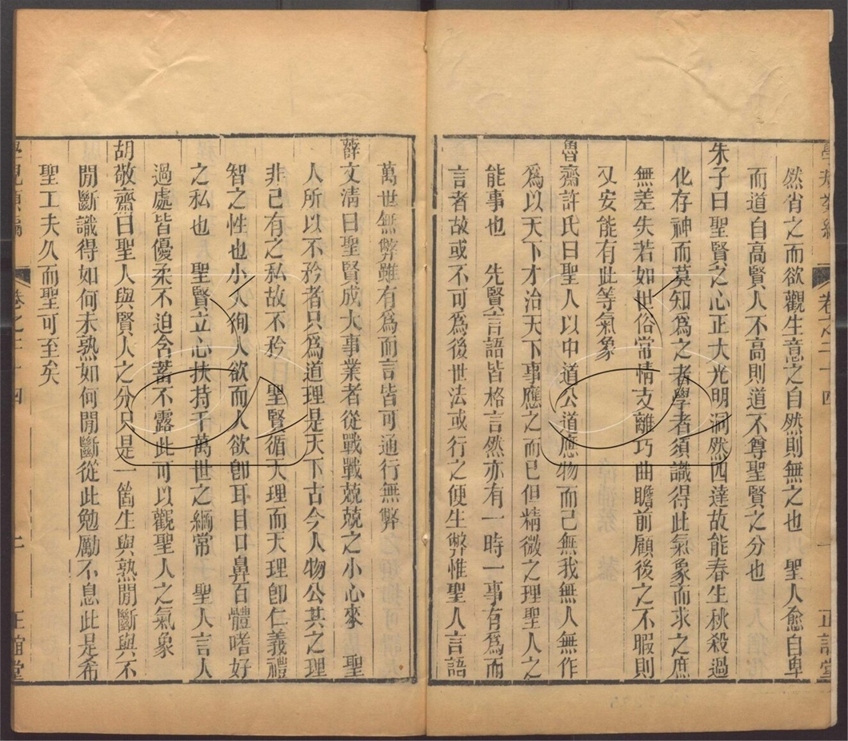 然肖之而欲觀生意之自然則無之也　聖人愈自卑
而道自高賢人不高則道不尊聖賢之分也
朱子曰聖賢之心正大光明洞然四達故能春生秋殺過
化存神而莫知爲之者學者須識得此氣象而求之庶
無差失若如世俗常情支離巧曲瞻前顧後之不暇則
又安能有此等氣象
魯齋許氏曰聖人以中道公道應物而已無我無人無作
爲以天下才治天下事應之而已但精微之理聖人之
能事也　先賢言語皆格言然亦有一時一事有爲而
言者故或不可爲後世法或行之便生弊惟聖人言語
萬世無弊雖有爲而言皆可通行無弊
薛文清曰聖賢成大事業者從戰戰兢兢之小心來　聖
人所以不矜者只爲道理是天下古今人物公共之理
非己有之私故不矜　聖賢循天理而天理卽仁義禮
智之性也小人徇人欲而人欲卽耳目口鼻百體嗜好
之私也　聖賢立心扶持千萬世之綱常　聖人言人
過處皆優柔不迫含蓄不露此可以觀聖人之氣象
胡敬齋曰聖人與賢人之分只是一箇生與熟閒斷與不
閒斷識得如何未熟如何閒斷從此勉勵不息此是希
聖工夫久而聖可至矣
卷之二十四
二
正誼堂